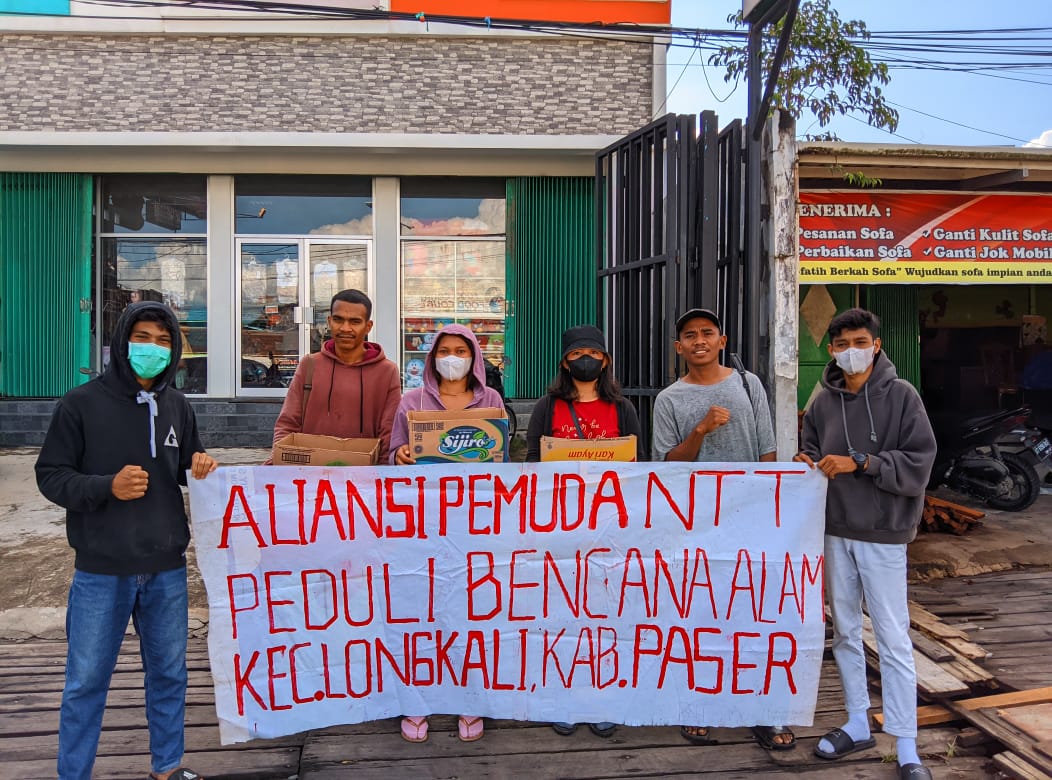 ENERIMA :
Pesanan Sofa ✓ Ganti Kulit Sofa
Perbaikan Sofa ✓ Ganti Jok Mobil
fatih Berkah Sofa" Wujudkan sofa impian anda
FOOD COURT
Sijiro
Kari Ayam
ALIANSI PEMUDA NTT
PEDULI BENCANA ALAM
KEC.LONGKALI, KAB.PASER